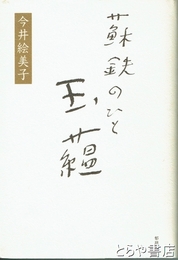 蘇鉄のひと
玉蘊
今井絵美子
とらや書店